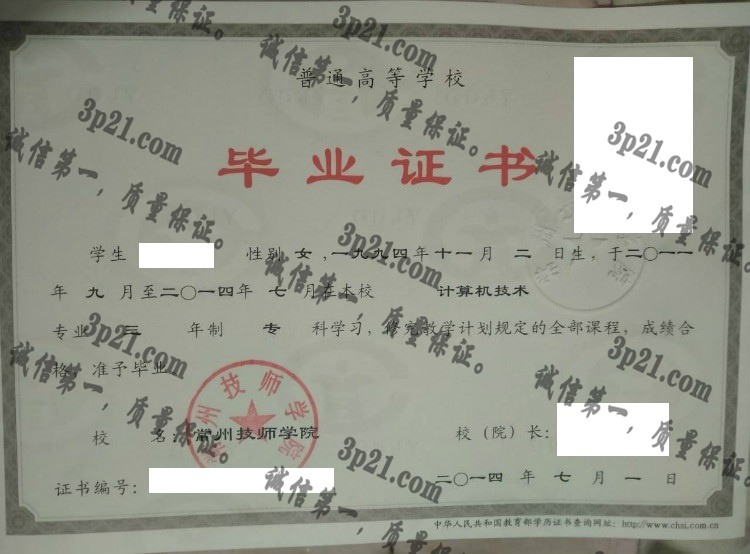 普通高等学校
毕业证书
学生 性别 女，一九九四年十一月 二 日生，于二〇一一
年 九 月至二〇一四年 七 月在本校 计算机技术
专业 三 年制 专 科学习，修完教学计划规定的全部课程，成绩合
格，准予毕业
常州技师学院
校 名：常州技师学院 校（院）长：
证书编号： 二〇一四 年 七 月 一 日
中华人民共和国教育部学历证书查询网址：http://www.chsi.com.cn
3p21.com
诚信第一，质量保证。
3p21.com
诚信第一，质量保证。
3p21.com
诚信第一，质量保证。
3p21.com
诚信第一，质量保证。
3p21.com
诚信第一，质量保证。
3p21.com
诚信第一，质量保证。
3p21.com
诚信第一，质量保证。
3p21.com
诚信第一，质量保证。